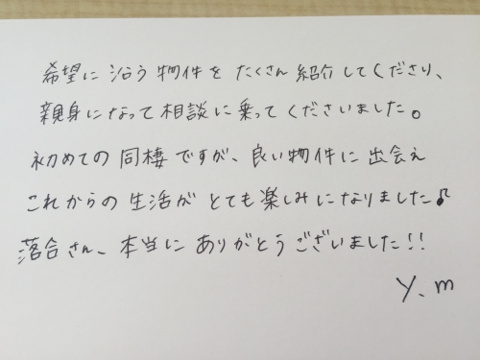 希望に沿う物件をたくさん紹介してくださり、
親身になって相談に乗ってくださいました。
初めての同棲ですが、良い物件に出会え
これからの生活がとても楽しみになりました♪
落合さん、本当にありがとうございました!!
Y.m